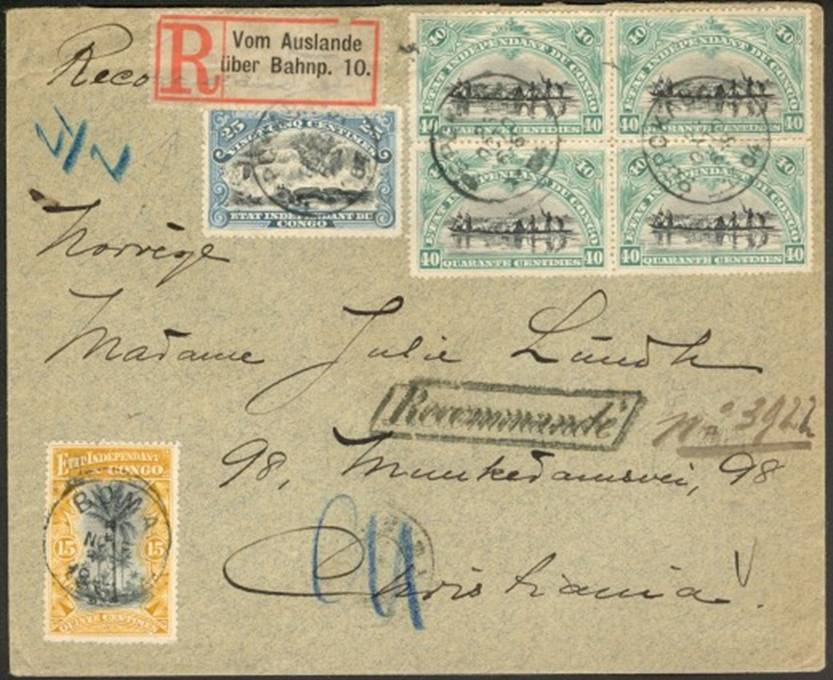 Reco
R Vom Auslande
über Bahnp. 10.
25 25
VINGT-CINQ CENTIMES
ETAT INDÉPENDANT DU
CONGO
40 40
ETAT INDÉPENDANT DU CONGO
40 QUARANTE CENTIMES 40
40 40
ETAT INDÉPENDANT DU CONGO
40 QUARANTE CENTIMES 40
40 40
ETAT INDÉPENDANT DU CONGO
40 QUARANTE CENTIMES 40
40 40
ETAT INDÉPENDANT DU CONGO
40 QUARANTE CENTIMES 40
Norvège
Madame Julie Lündh
Recommandé
No 3922
98, Munkedamsvei, 98
Christiania
ETAT INDÉPENDANT
DU CONGO
BOMA
15 15
QUINZE CENTIMES